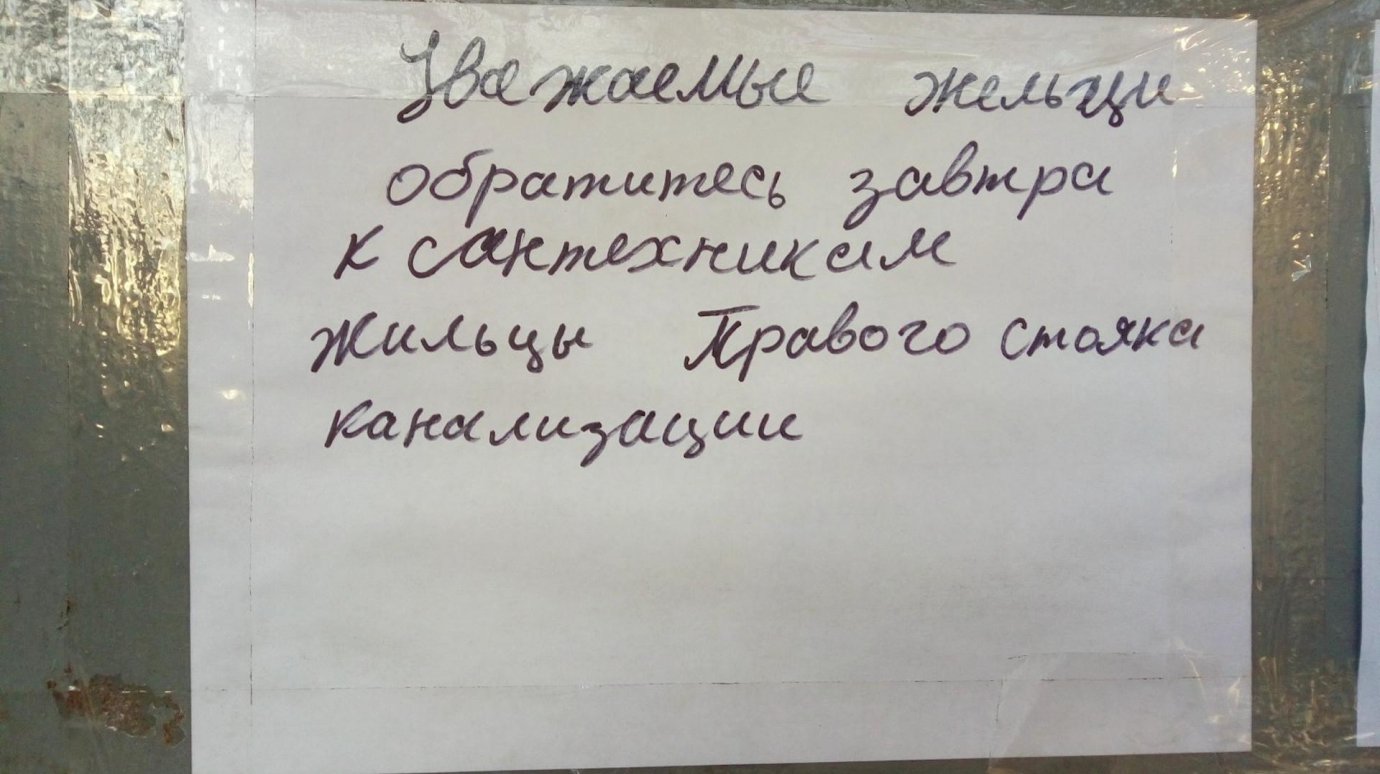 Уважаемые жельци
обратитесь завтра
к сантехникам
жильцы Правого стояка
канализации